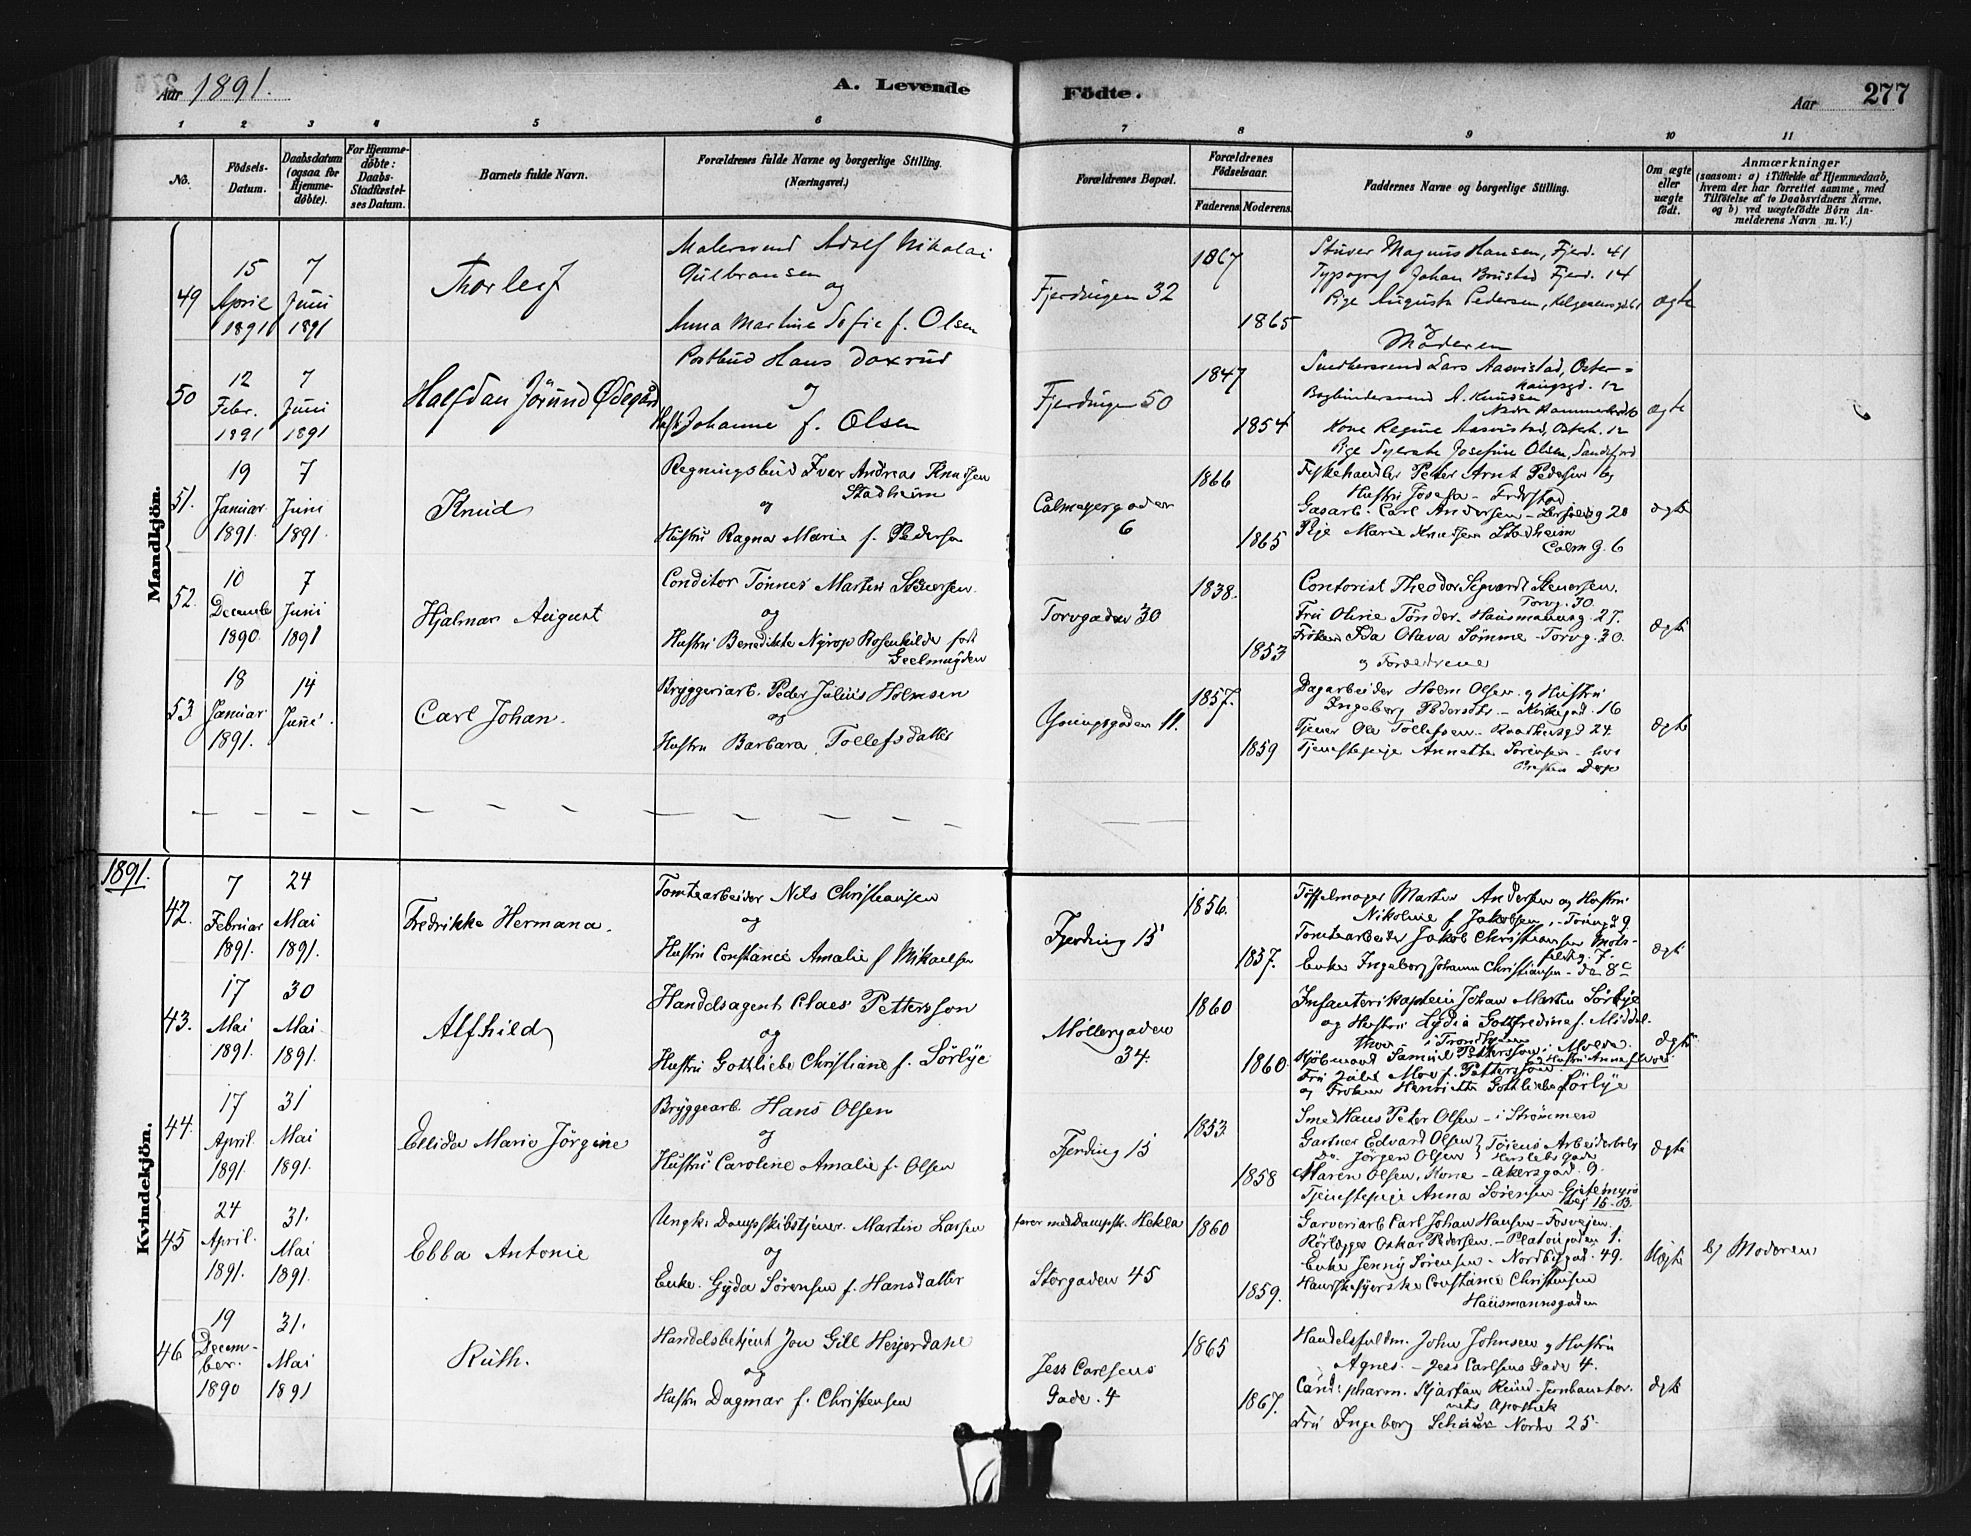 Aar 1891.
A. Levende Födte.
Aar 277
1 2 3 4 5 6 7 8 9 10 11
No.
Födsels-Datum.
Daabsdatum (ogsaa for Hjemmedöbte).
For Hjemmedöbte: Daabs-Stadfæstelses Datum.
Barnets fulde Navn.
Forældrenes fulde Navne og borgerlige Stilling.
(Næringsvei.)
Forældrenes Bopæl.
Forældrenes Födselsaar.
Faderens. Moderens.
Faddernes Navne og borgerlige Stilling.
Om ægte eller uægte födt.
Anmærkninger
(saasom: a) i Tilfælde af Hjemmedaab,
hvem der har forrettet samme, med
Tilföielse af to Daabsvidners Navne.
og b) ved uægtefödte Börn An-
melderens Navn m. V.)
Mandkjön.
49
15 April 1891
7 Juni 1891
Thorleif
Malersvend Adolf Nikolai
Gulbransen
og
Anna Martine Sofie f. Olsen
Fjerdingen 32
1867
1865
Stuver Magnus Hansen, Fjerd. 41
Typograf Johan Brustad Fjerd. 14
Pige Augusta Pedersen,
og
Moderen
ægte
50
12 Febr. 1891
7 Juni 1891
Halfdan Jörund Ødegård
Postbud Hans Doxrud
og
Johanne f. Olsen
Fjerdingen 50
1847
1854
Snedkersvend Lars Aasvistad, Oster-
haugsgd. 12
Bogbindersvend A. Knudsen
Kone Regine Aasvistad, Osterh. 12
Pige Josefine Olsen, Sandefjord
ægte
51.
19 Januar 1891.
7 Juni 1891.
Knud
Regningsbud Iver Andreas Knudsen
Stadheim
og
Hustru Ragna Marie f. Pedersen
Calmeyergaden
6
1866
1865
Fiskehandler Peter Arnt Pedersen og
Hustru Josefa - Fredrstad
Gasarb. Carl Andersen - 20
Pige Marie Knudsen Stadheim
Calm G. 6
ægte
52.
10 December 1890.
7 Juni 1891
Hjalmar August
Conditor Tönnes Martin Stenersen.
og
Hustru Benedikte Nyrop Rosenkilde født
Geelmuyden
Torvgaden 30
1838.
1853
Contorist Theodor Sigvardt Stenersen.
Torvg. 30.
Fru Oline Tönder. Hausmannsg. 27.
Frøken Ida Olava Sömme - Torvg. 30.
og Forældrene
ægte
53
18 Januar 1891.
14 Juni.
Carl Johan.
Bryggeriarb. Peder Julius Holmsen
og
Hustru Barbara Tollefsdatter
11.
1857.
1859
Dagarbeider Holm Olsen og Hustru
Ingeborg Pedersdtr. - 16
Tjener Ole Tollefsen - Raadhusgd 24
Tjenestepige Annette Sorensen - hos
ægte
1891.
Kvindekjön.
42.
7 Februar 1891.
24 Mai 1891.
Fredrikke Hermana.
Tomtearbeider Nils Christiansen
og
Hustru Constance Amalie f Mikaelsen
Fjerding 15
1856.
1857.
Töffelmager Martin Andersen og Hustru
Nikoline f Jakobsen,
Tomtearbeider Jakob Christiansen
Enke Ingeborg Johanne Christiansen - do 8 c
ægte
43.
17 Mai 1891.
30 Mai 1891.
Alfhild
Handelsagent Claes Pettersson
og
Hustru Gottliebe Christiane f. Sörbye
Møllergaden
34.
1860
1860
Infanterikaptein Johan Martin Sörbye
og Hustru Lydia Gottfredine f. Middel-
thon i Trondhjem
Kjöbmand Samuel Pettersson og Hustru Anna f.
Fru Moe f. Pettersson
og Frøken Henriette Gottliebe Sörbye
ægte
44.
17 April. 1891
31 Mai 1891.
Ellida Marie Jörgine
Bryggearb. Hans Olsen
og
Hustru Caroline Amalie f. Olsen
Fjerding 15
1853.
1858
Smed Hans Peter Olsen - i Strömmen
Gartner Edvard Olsen } Töiens Arbeiderbolig
Do. Jörgen Olsen } Herslebs gade
Maren Olsen, Kone - Akersgad. 9.
Tjenestepige Anna Sörensen - Gjetemyrs
vej 15. B.
ægte
45
24 April. 1891.
31. Mai 1891.
Ebba Antonie
Ungk. Dampskibstjener. Martin Larsen
og
Enke. Gyda Sørensen f. Hansdatter
farer med Dampsk. Hekla
Storgaden 45
1860
1859.
Garveriarb Carl Johan Hansen -
Rörlægger Oskar Pedersen. - Platougaden 1.
Enke Jenny Sörensen - Nordbygad. 49.
Handskesyerske Constance Christensen
Hausmannsgaden
Uægte
b) Moderen
46
19 December. 1890
31. Mai 1891
Ruth.
Handelsbetjent Jon Gill Heyerdahl
og
Hustru Dagmar f. Christensen
Jess Carlsens
Gade. 4
1865
1867.
Handelsfuldm. John Johnsen og Hustru
Agnes. - Jess Carlsens Gade 4.
Cand: pharm. Kjartan Jernbanetor-
vets Apothek
Fru Ingeborg Nordre 25
ægte